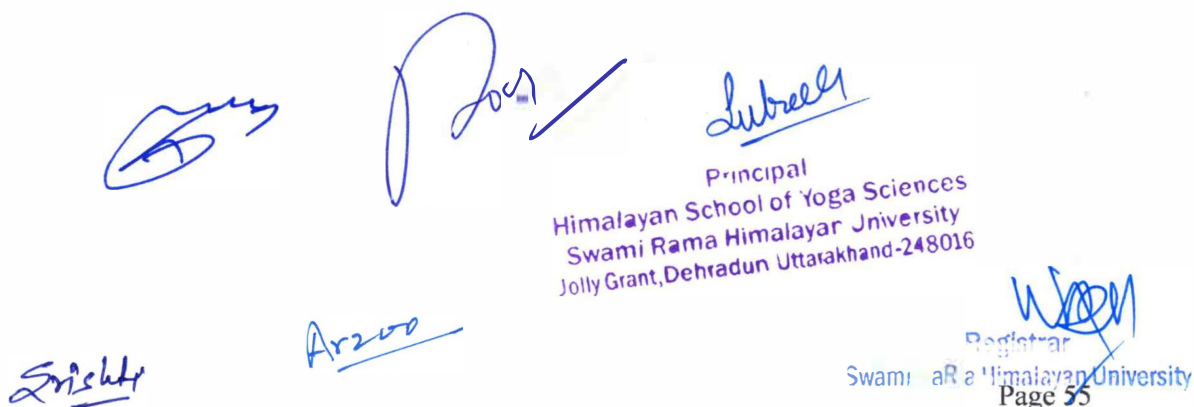 Principal
Himalayan School of Yoga Sciences
Swami Rama Himalayar Jniversity
Jolly Grant, Dehradun Uttarakhand-248016
Arzoo
Srishti
Registrar
Swami aR a Himalayan University
Page 55